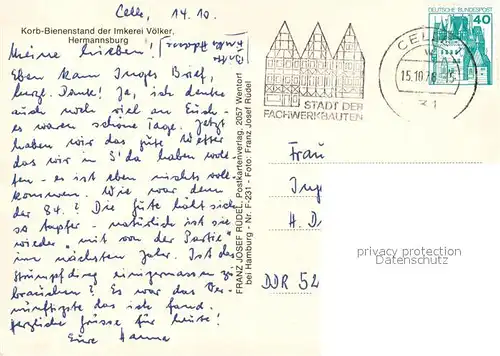 Celle, 14.10.
Korb-Bienenstand der Imkerei Völker,
Hermannsburg
Meine Lieben!
Eben kam Inges Brief,
herz. Dank! Ja, ich denke
auch noch viel an Euch -
es waren schöne Tage. Jetzt
haben wir das gute Wetter
das wir in S'da haben woll
ten - es ist eben nichts voll-
kommen. Wie war denn
der 84.? Die Güte hält sich
so tapfer - natürlich ist sie
wieder "mit von der Partie"
im nächsten Jahr. Ist das
Strumpfding einigermassen zu
brauchen? Es war das Ver-
nünftigste das ich fand.
Herzliche Grüsse für heute!
Eure Hanna
FRANZ JOSEF RÜDEL, Postkartenverlag, 2057 Wentorf
bei Hamburg · Nr. F-231 - Foto: Franz Josef Rüdel
STADT DER
FACHWERKBAUTEN
CELLE
15.10.78
31
DEUTSCHE BUNDESPOST
40
Frau
Ing
H. D.
DDR 52
privacy protection
Datenschutz